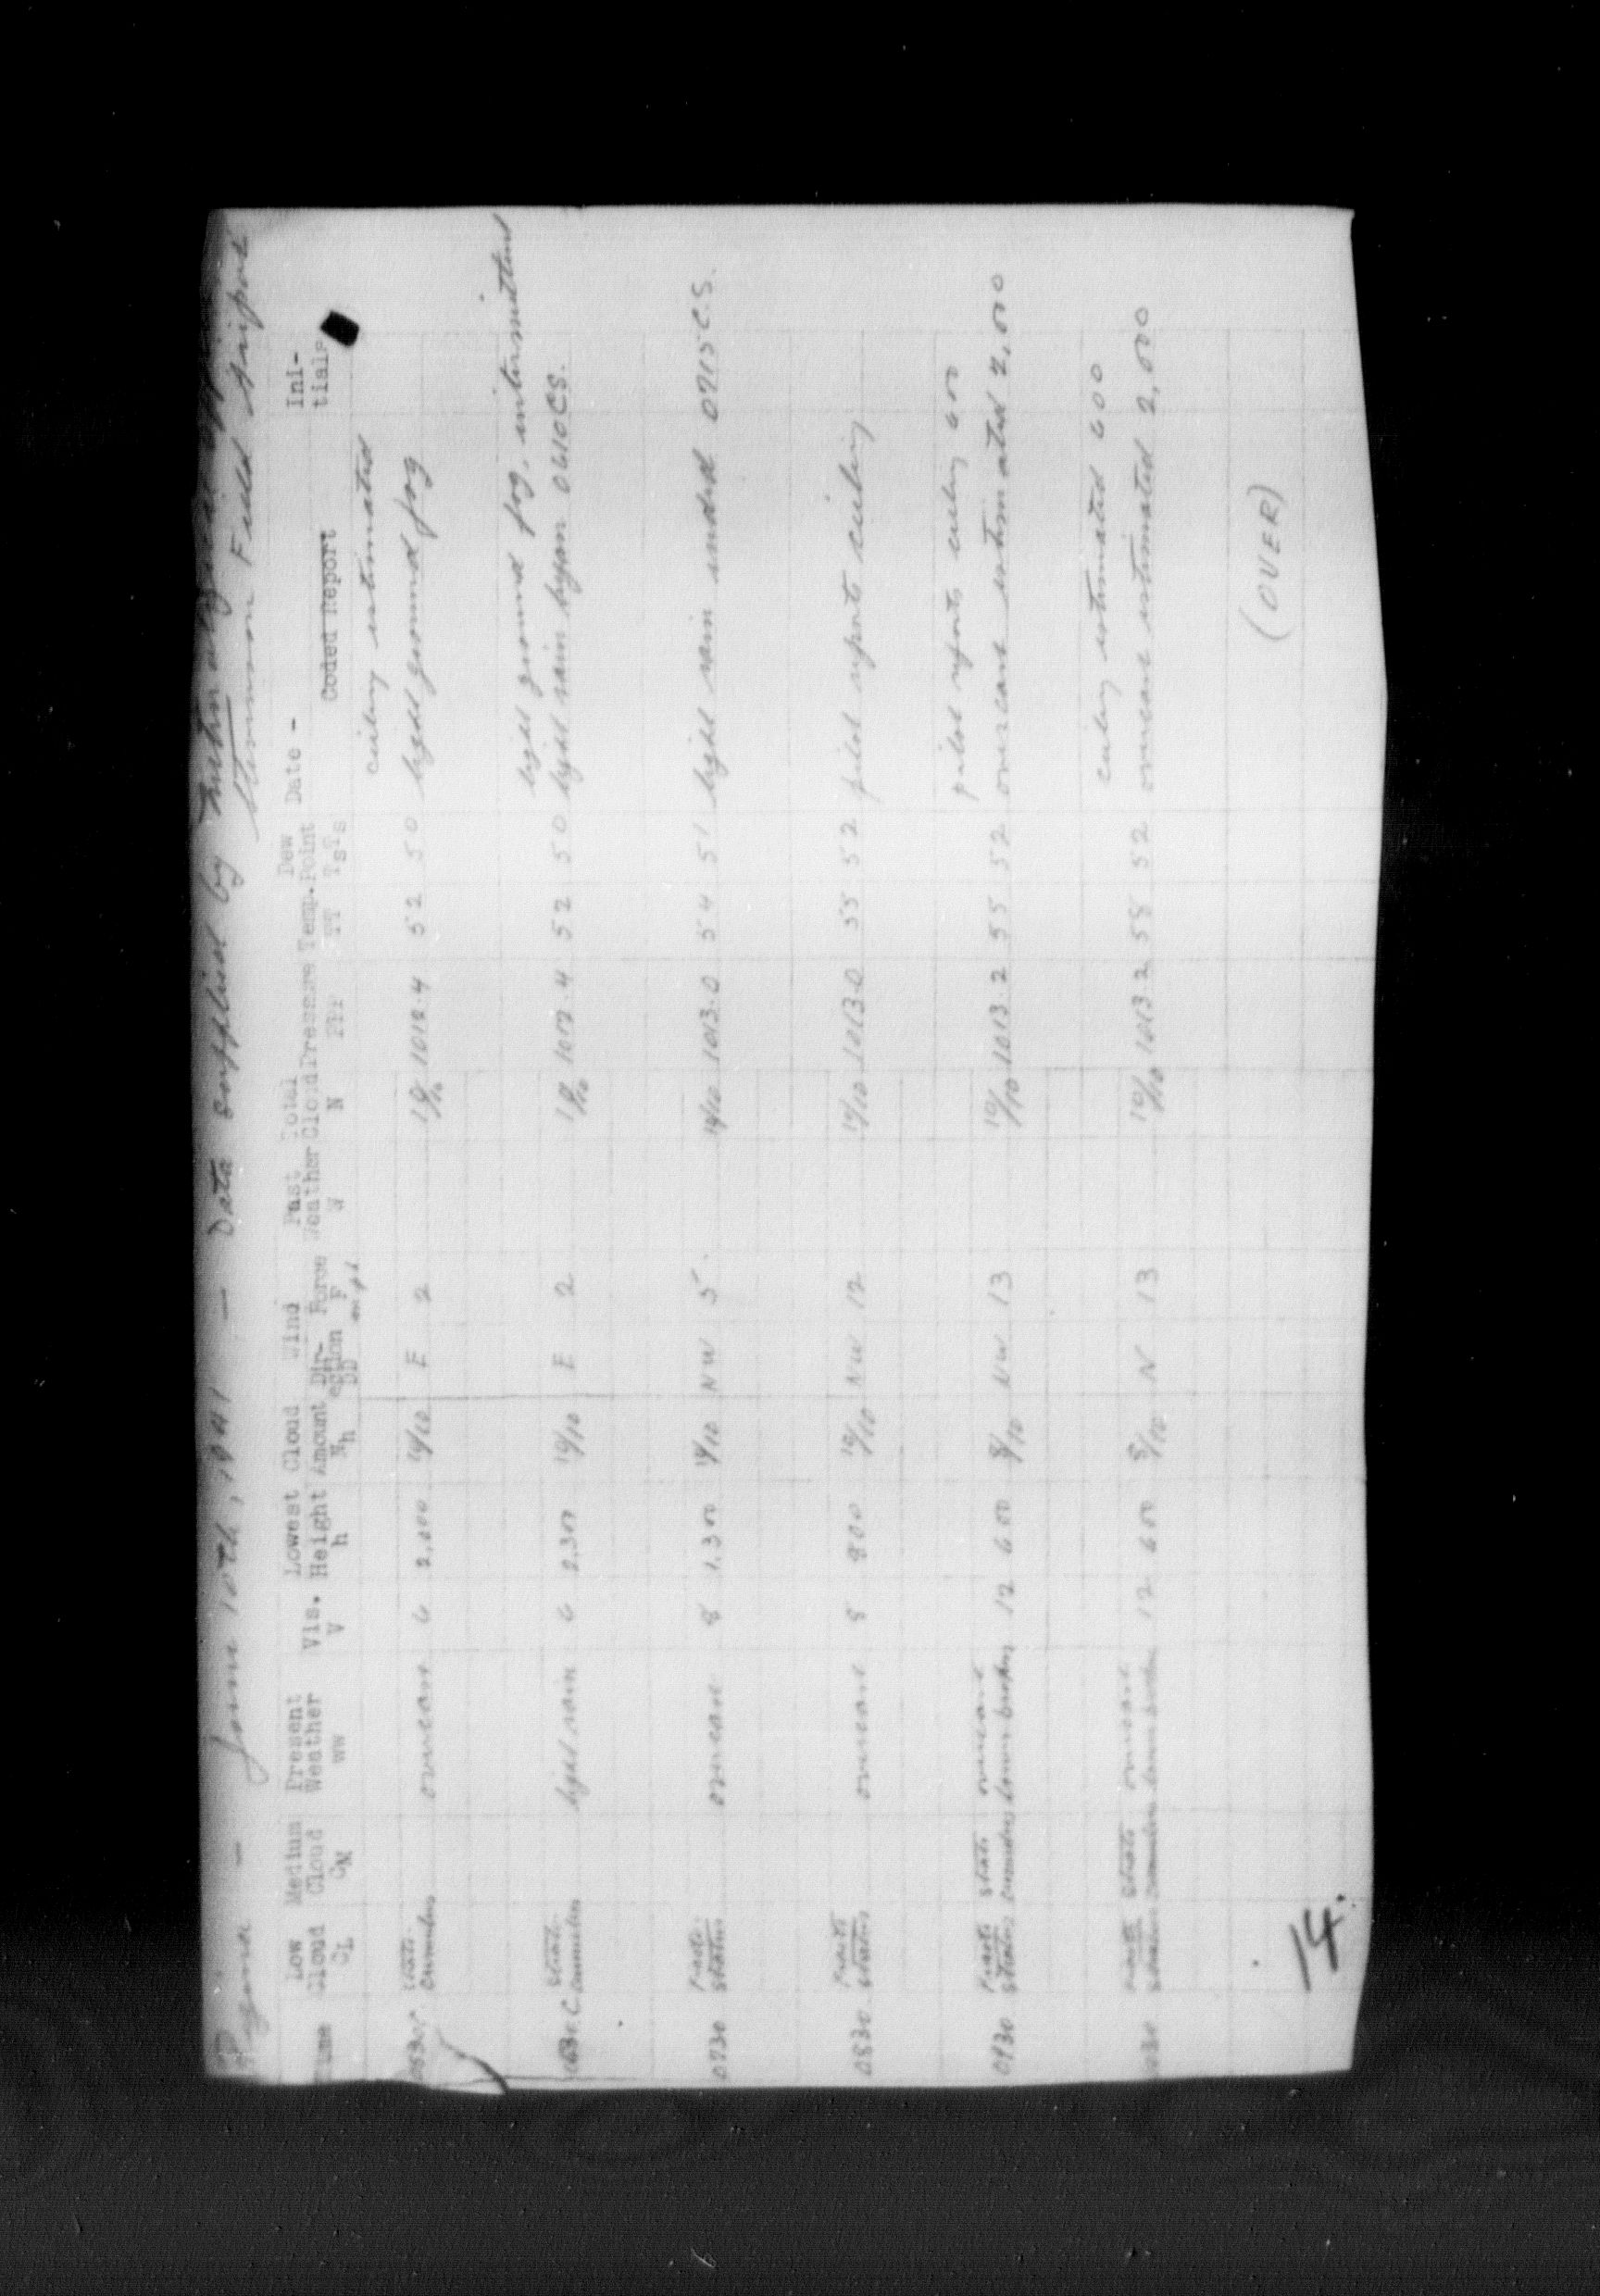 Regina - June 10th, 1941 - Data supplied by
Field Airport
Time Low Cloud CL Medium Cloud CM Present Weather ww Vis. V Lowest Cloud Height h Amount Nh Wind Direction DD Force F m.p.h. Past Weather W Total Cloud N Pressure PPP Temp. TT Dew Point TsTs Date - Coded Report Initials
ceiling estimated
0530 Strato cumulus overcast 6 2,000 10/10 E 2 10/10 1012.4 52 50 light ground fog
light ground fog, intermittent
0630 C. Strato cumulus light rain 6 2,300 10/10 E 2 10/10 1012.4 52 50 light rain began 0610 CS.
0730 Fracto stratus overcast 8 1,300 10/10 NW 5 10/10 1013.0 54 51 light rain ended 0715 C.S.
0830 Fracto stratus overcast 8 800 10/10 NW 12 10/10 1013.0 55 52 pilot reports ceiling
pilot reports ceiling 600
0930 Fracto stratus Strato cumulus overcast lower broken 12 600 8/10 NW 13 10/10 1013.2 55 52 overcast estimated 2,000
ceiling estimated 600
1030 Fracto stratus Strato cumulus overcast lower broken 12 600 8/10 N 13 10/10 1013.2 58 52 overcast estimated 2,000
(OVER)
14.